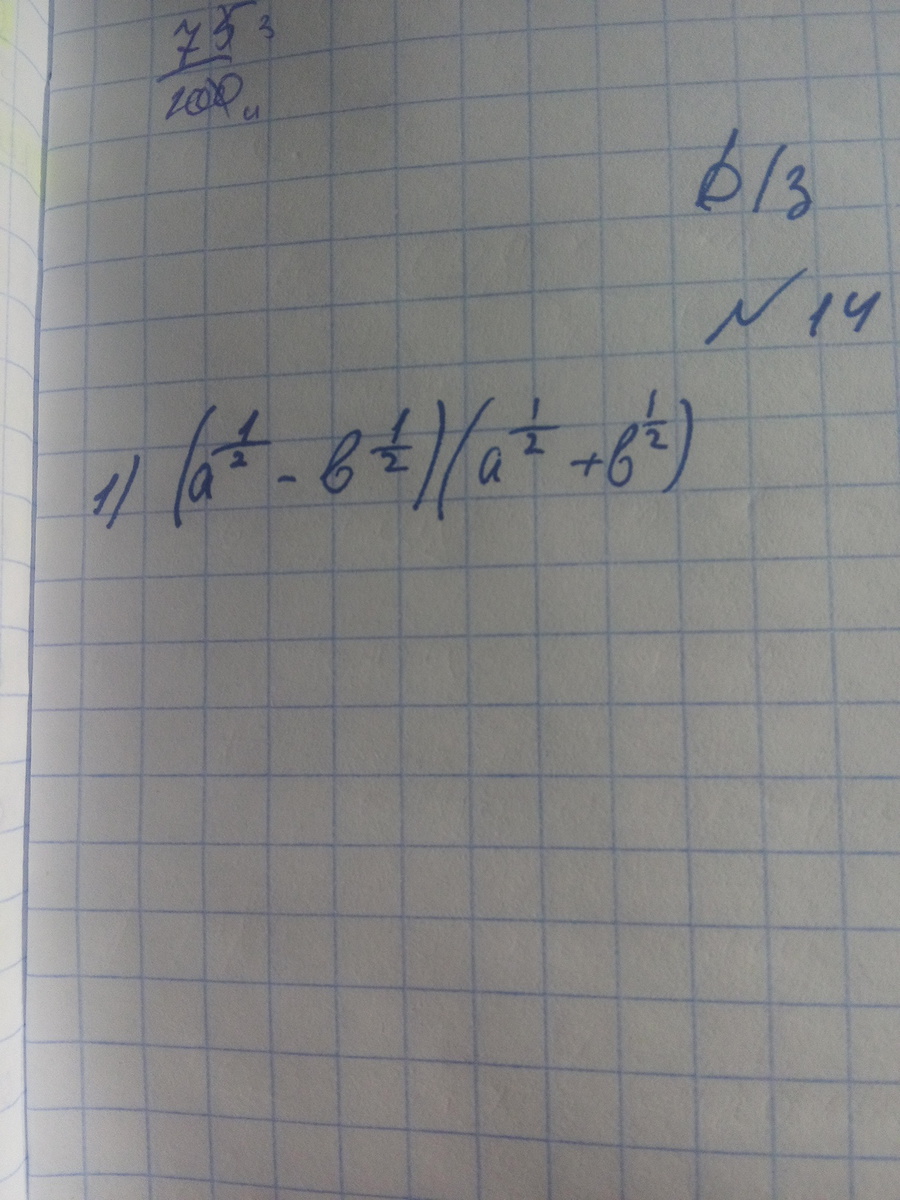 75 3
100 4
д/з
№ 14
1) (a^{1/2} - b^{1/2})(a^{1/2} + b^{1/2})